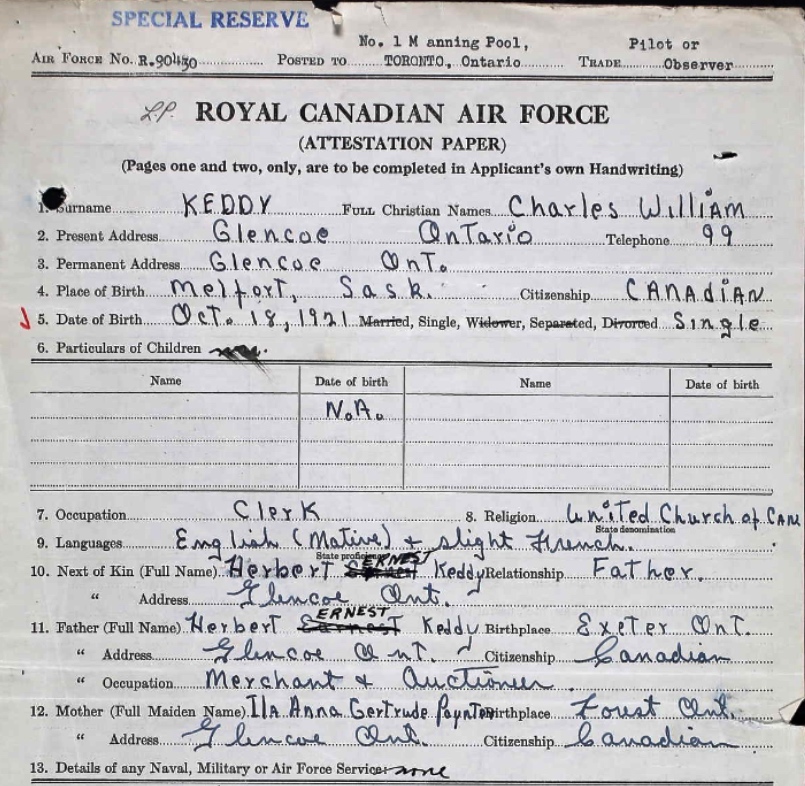 SPECIAL RESERVE
No. 1 M anning Pool, Pilot or
AIR FORCE No. R.90430 POSTED TO TORONTO, Ontario TRADE Observer
L.P. ROYAL CANADIAN AIR FORCE
(ATTESTATION PAPER)
(Pages one and two, only, are to be completed in Applicant's own Handwriting)
1. Surname KEDDY FULL Christian Names Charles WilliAM
2. Present Address Glencoe OnTario Telephone 99
3. Permanent Address Glencoe OnT.
4. Place of Birth Melfort, Sask. Citizenship CANAdiAN
5. Date of Birth Oct. 18, 1921 Married, Single, Widower, Separated, Divorced Single
6. Particulars of Children
Name Date of birth Name Date of birth
N.A.
7. Occupation Clerk 8. Religion United Church of CAN
State denomination
9. Languages English (Native) + slight French.
State proficiency ERNEST
10. Next of Kin (Full Name) Herbert Keddy Relationship Father.
" Address Glencoe Ont.
ERNEST
11. Father (Full Name) Herbert Earnest Keddy Birthplace Exeter Ont.
" Address Glencoe Ont. Citizenship Canadian
" Occupation Merchant & Auctioneer.
12. Mother (Full Maiden Name) Ila Anna Gertrude Poynton Birthplace Forest Ont.
" Address Glencoe Ont. Citizenship Canadian
13. Details of any Naval, Military or Air Force Service: none